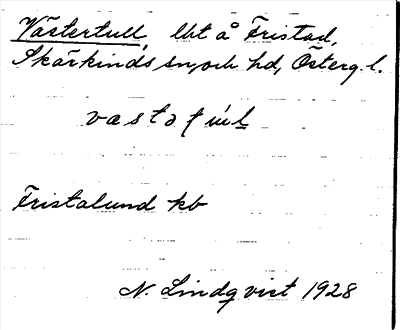 Västertull, lht å Fristad,
Skärkinds sn, och hd, Österg. l.
Fristalund kb
N. Lindqvist 1928